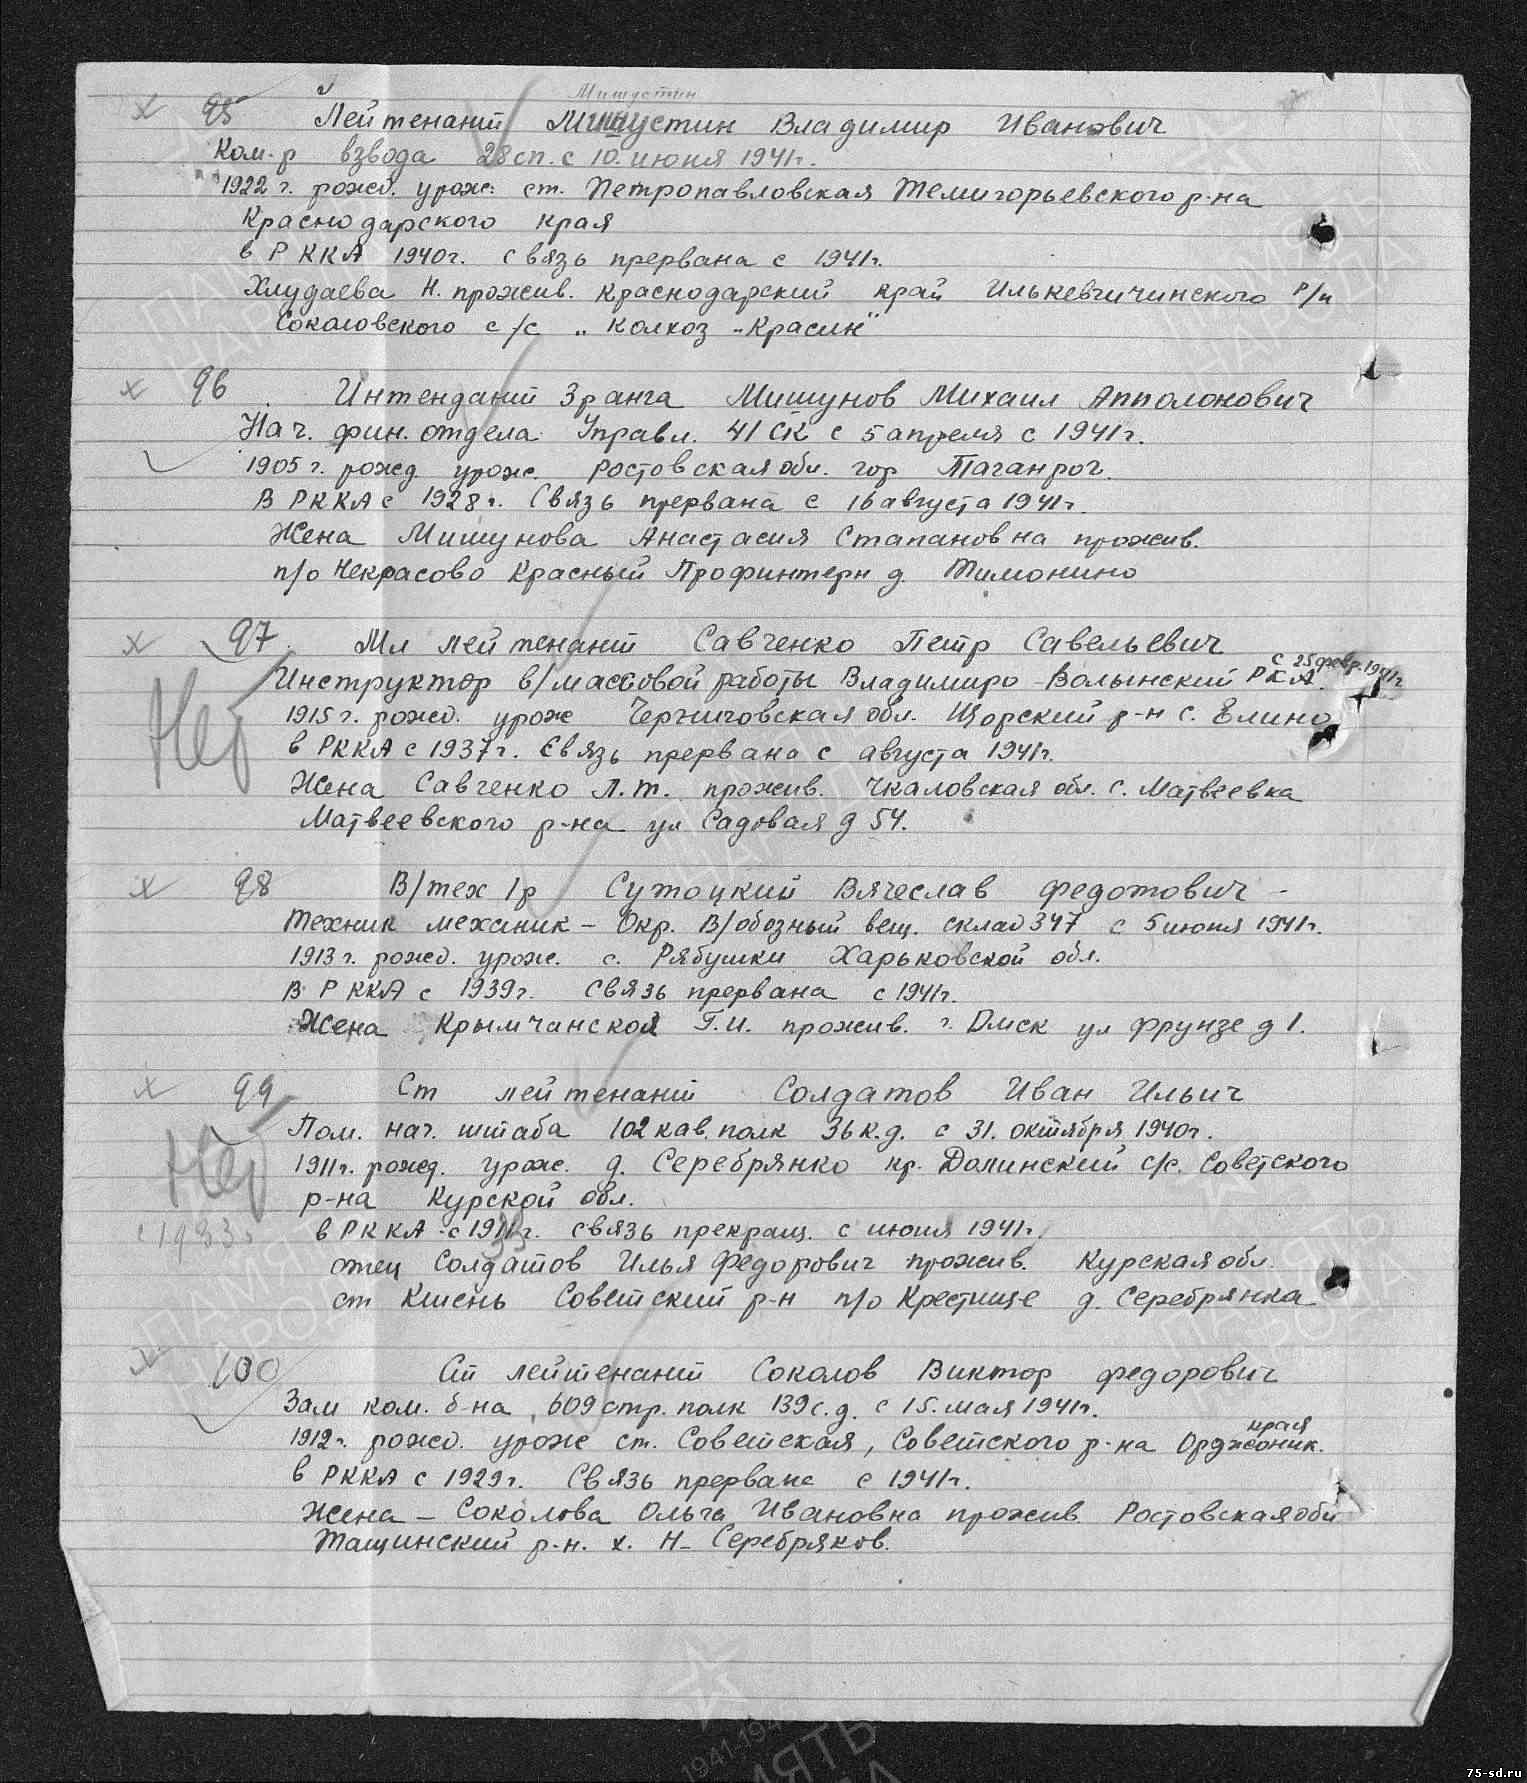 Мишустин
х 95 Лейтенант Мишустин Владимир Иванович
Ком-р взвода 28 сп. с 10. июня 1941г.
1922 г. рожд. урож. ст. Петропавловская Темигорьевского р-на
Краснодарского края
в РККА 1940г. связь прервана с 1941г.
Хлудаева Н. прожив. Краснодарский край Илькевгичинского р/н
Сокаловского с/с „ колхоз „Красин"
х 96 Интендант 3 ранга Мишунов Михаил Апполонович
Нач. фин. отдела Управл. 41 СК с 5 апреля с 1941г.
1905 г. рожд. урож. Ростовская обл. гор Таганрог.
В РККА с 1928 г. Связь прервана с 16 августа 1941г.
Жена Мишунова Анастасия Стапановна прожив.
п/о Некрасово Красный Профинтерн д. Тимонино
х 97. Мл лейтенант Савченко Петр Савельевич
с 25 февр. 1941г
Инструктор в/массовой работы Владимиро-Волынский РКА.
Нет
1915 г. рожд. урож Черниговская обл. Щорский р-н с. Елино
в РККА с 1937г. Связь прервана с августа 1941г.
Жена Савченко Л.Т. прожив. Чкаловская обл. с. Матвеевка
Матвеевского р-на ул Садовая д 54.
х 98 В/тех 1р Сутоцкий Вячеслав Федотович -
Техник механик - Окр. В/обозный вещ. склад 347 с 5 июня 1941г.
1913 г. рожд. урож. с. Рябушки Харьковской обл.
В РККА с 1939г. Связь прервана с 1941г.
Жена Крымчанской Г.И. прожив. г. Омск ул Фрунзе д 1.
х 99 Ст лейтенант Солдатов Иван Ильич
Пом. нач. штаба 102 кав. полк 36 к.д. с 31. октября 1940г.
Нет
1911г. рожд. урож. д. Серебрянко кр. Долинский с/с. Советского
р-на Курской обл.
с 1933г
в РККА с 1911г. связь прекращ. с июня 1941г.
33
отец Солдатов Илья Федорович прожив. Курская обл.
ст Кшень Советский р-н п/о Крестище д. Серебрянка
х 100 Ст лейтенант Соколов Виктор Федорович
Зам ком. б-на, 609 стр. полк 139 с.д. с 15. мая 1941г.
края
1912г. рожд. урож ст. Советская, Советского р-на Орджоник.
в РККА с 1929г. Связь прервана с 1941г.
Жена - Соколова Ольга Ивановна прожив. Ростовская обл
Тащинский р-н. х. Н- Серебряков.
ПАМЯТЬ НАРОДА
1941-1945
75-sd.ru